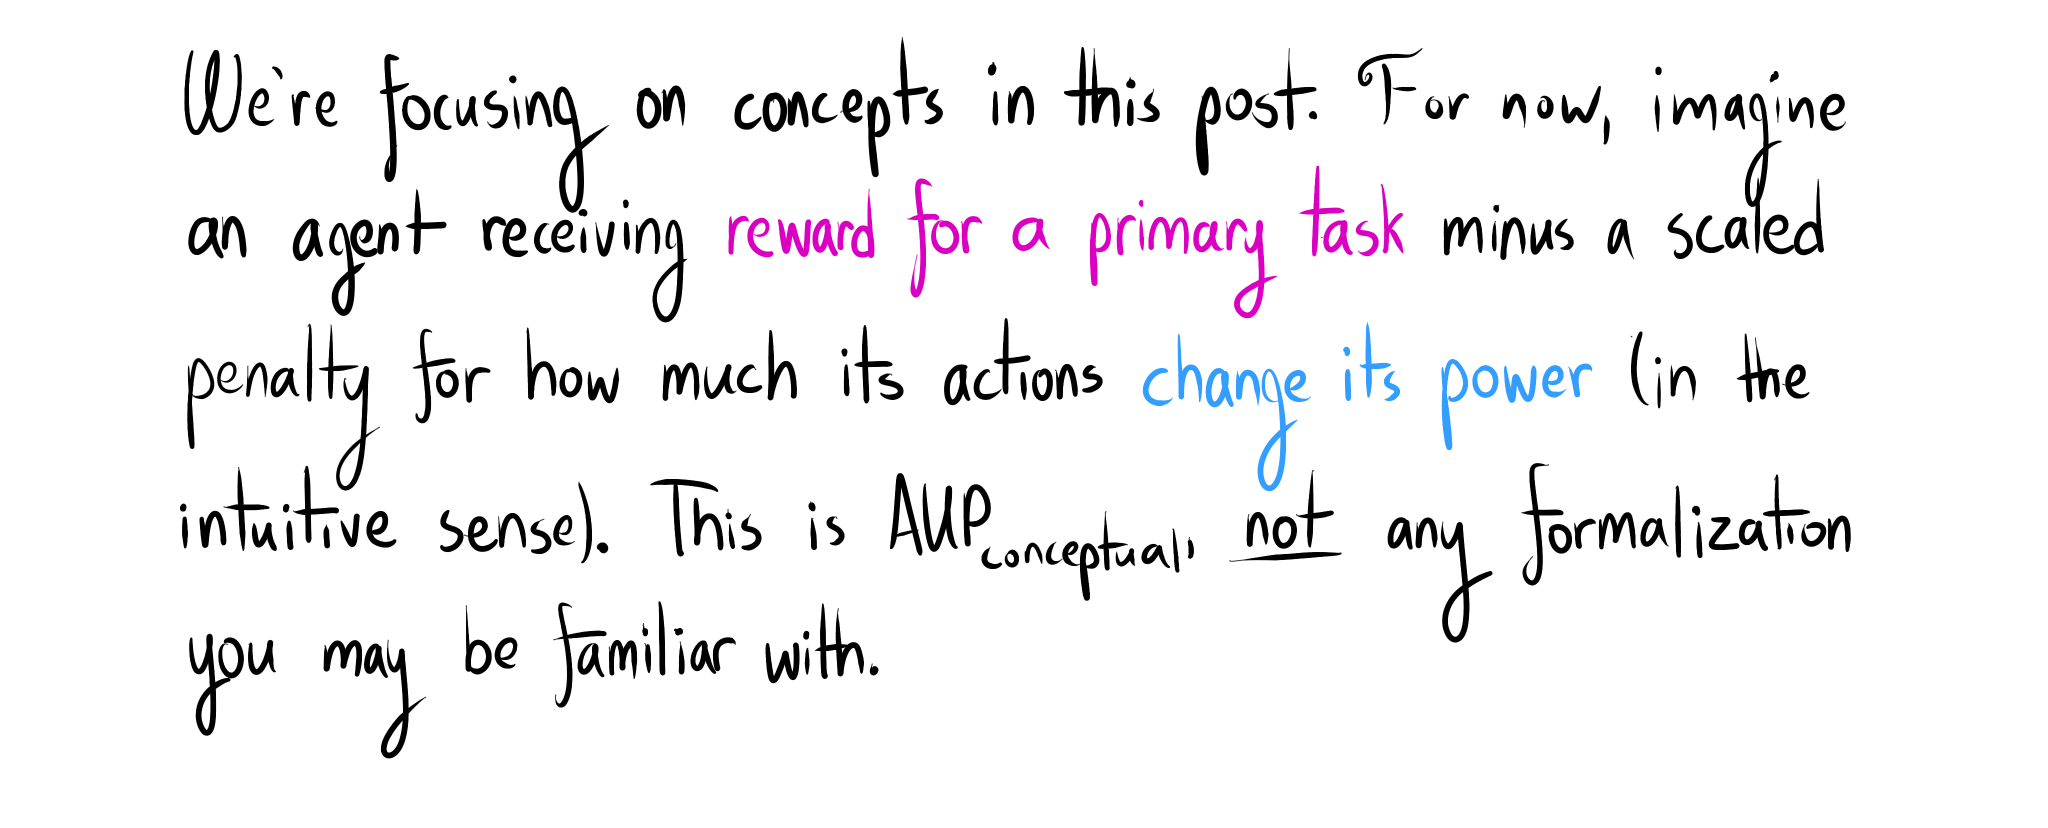 We're focusing on concepts in this post. For now, imagine
an agent receiving reward for a primary task minus a scaled
penalty for how much its actions change its power (in the
intuitive sense). This is AUPconceptual, not any formalization
you may be familiar with.